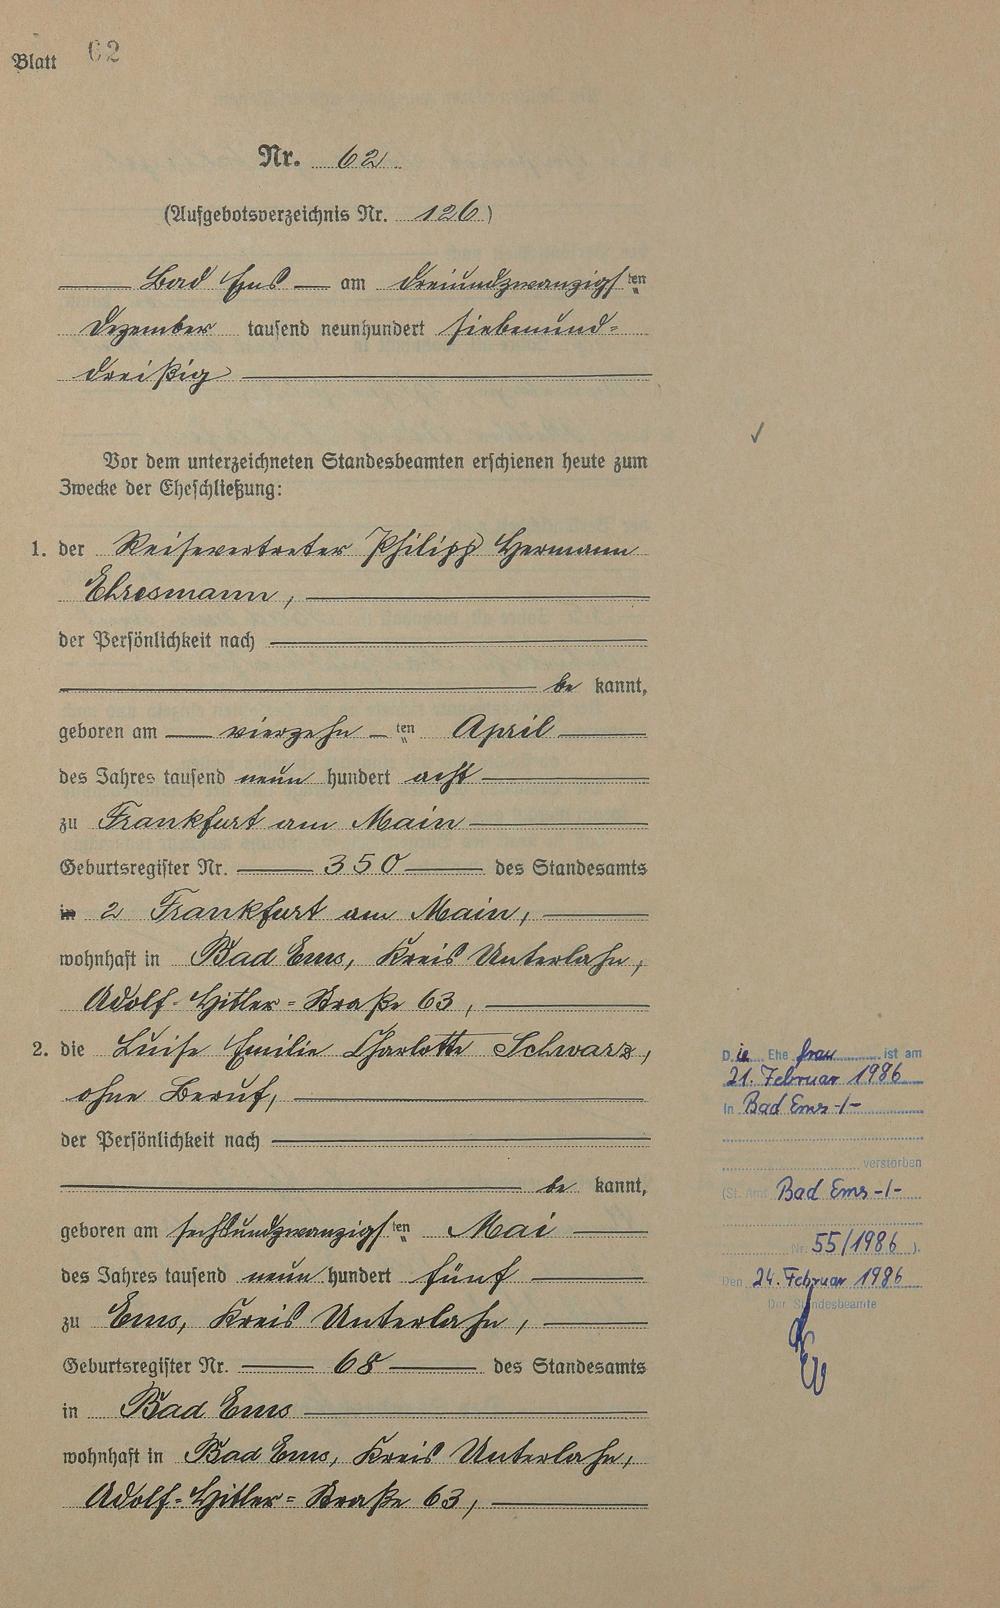 Blatt 62
Nr. 62
(Aufgebotsverzeichnis Nr. 126)
Bad Ems am dreiundzwanzigsten
Dezember tausend neunhundert siebenund-
dreißig
Vor dem unterzeichneten Standesbeamten erschienen heute zum
Zwecke der Eheschließung:
1. der Reisevertreter Philipp Hermann
Ehresmann,
der Persönlichkeit nach
be kannt,
geboren am vierzehn ten April
des Jahres tausend neun hundert acht
zu Frankfurt am Main
Geburtsregister Nr. 350 des Standesamts
in 2 Frankfurt am Main,
wohnhaft in Bad Ems, Kreis Unterlahn,
Adolf-Hitler-Straße 63,
2. die Luise Emilie Charlotte Schwarz,
ohne Beruf,
der Persönlichkeit nach
be kannt,
geboren am sechsundzwanzigsten Mai
des Jahres tausend neun hundert fünf
zu Ems, Kreis Unterlahn,
Geburtsregister Nr. 68 des Standesamts
in Bad Ems
wohnhaft in Bad Ems, Kreis Unterlahn,
Adolf-Hitler-Straße 63,
Die Ehe frau ist am
21. Februar 1986
in Bad Ems -/-
verstorben
(St. Amt Bad Ems -/-
Nr. 55/1986 ).
Den 24. Februar 1986
Der Standesbeamte